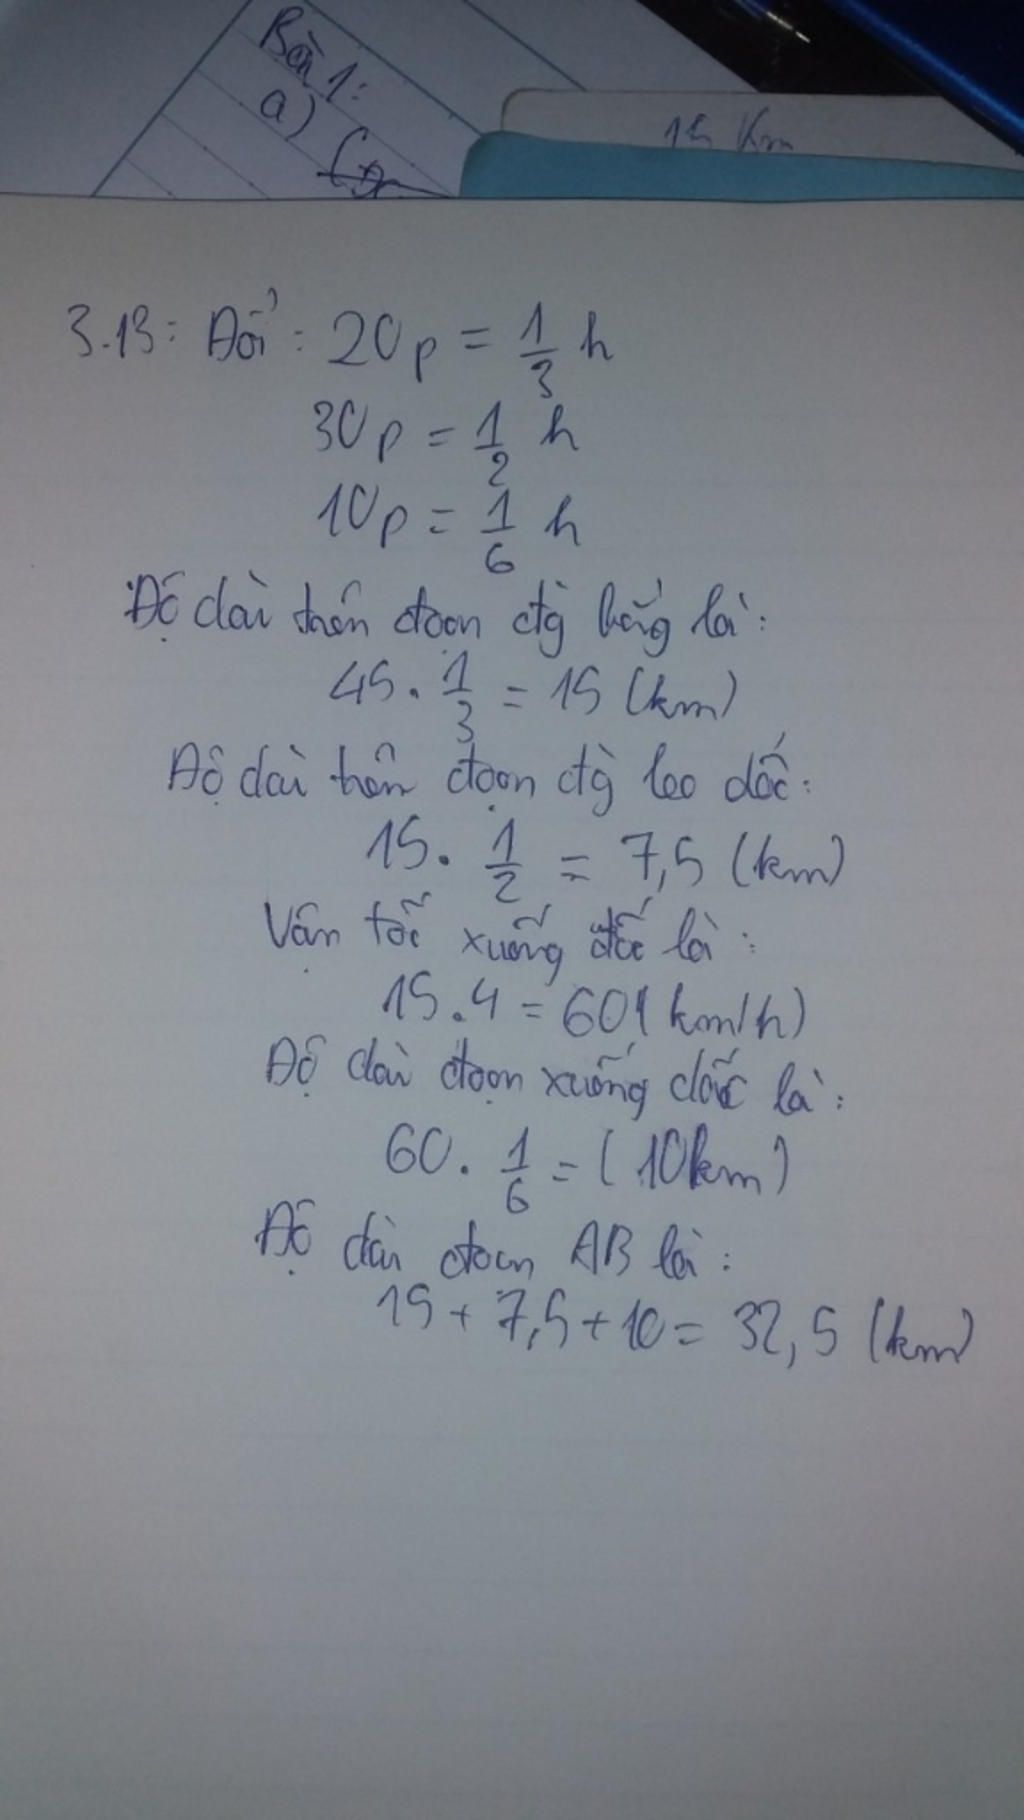 Bài 1:
a)
15 Km
3.13: Đổi: 20p = 1/3 h
30p = 1/2 h
10p = 1/6 h
Độ dài trên đoạn đg bằng là:
45. 1/3 = 15 (km)
Độ dài trên đoạn đg leo dốc:
15. 1/2 = 7,5 (km)
Vận tốc xuống dốc là:
15.4 = 60 (km/h)
Độ dài đoạn xuống dốc là:
60. 1/6 = (10km)
Độ dài đoạn AB là:
15 + 7,5 + 10 = 32,5 (km)